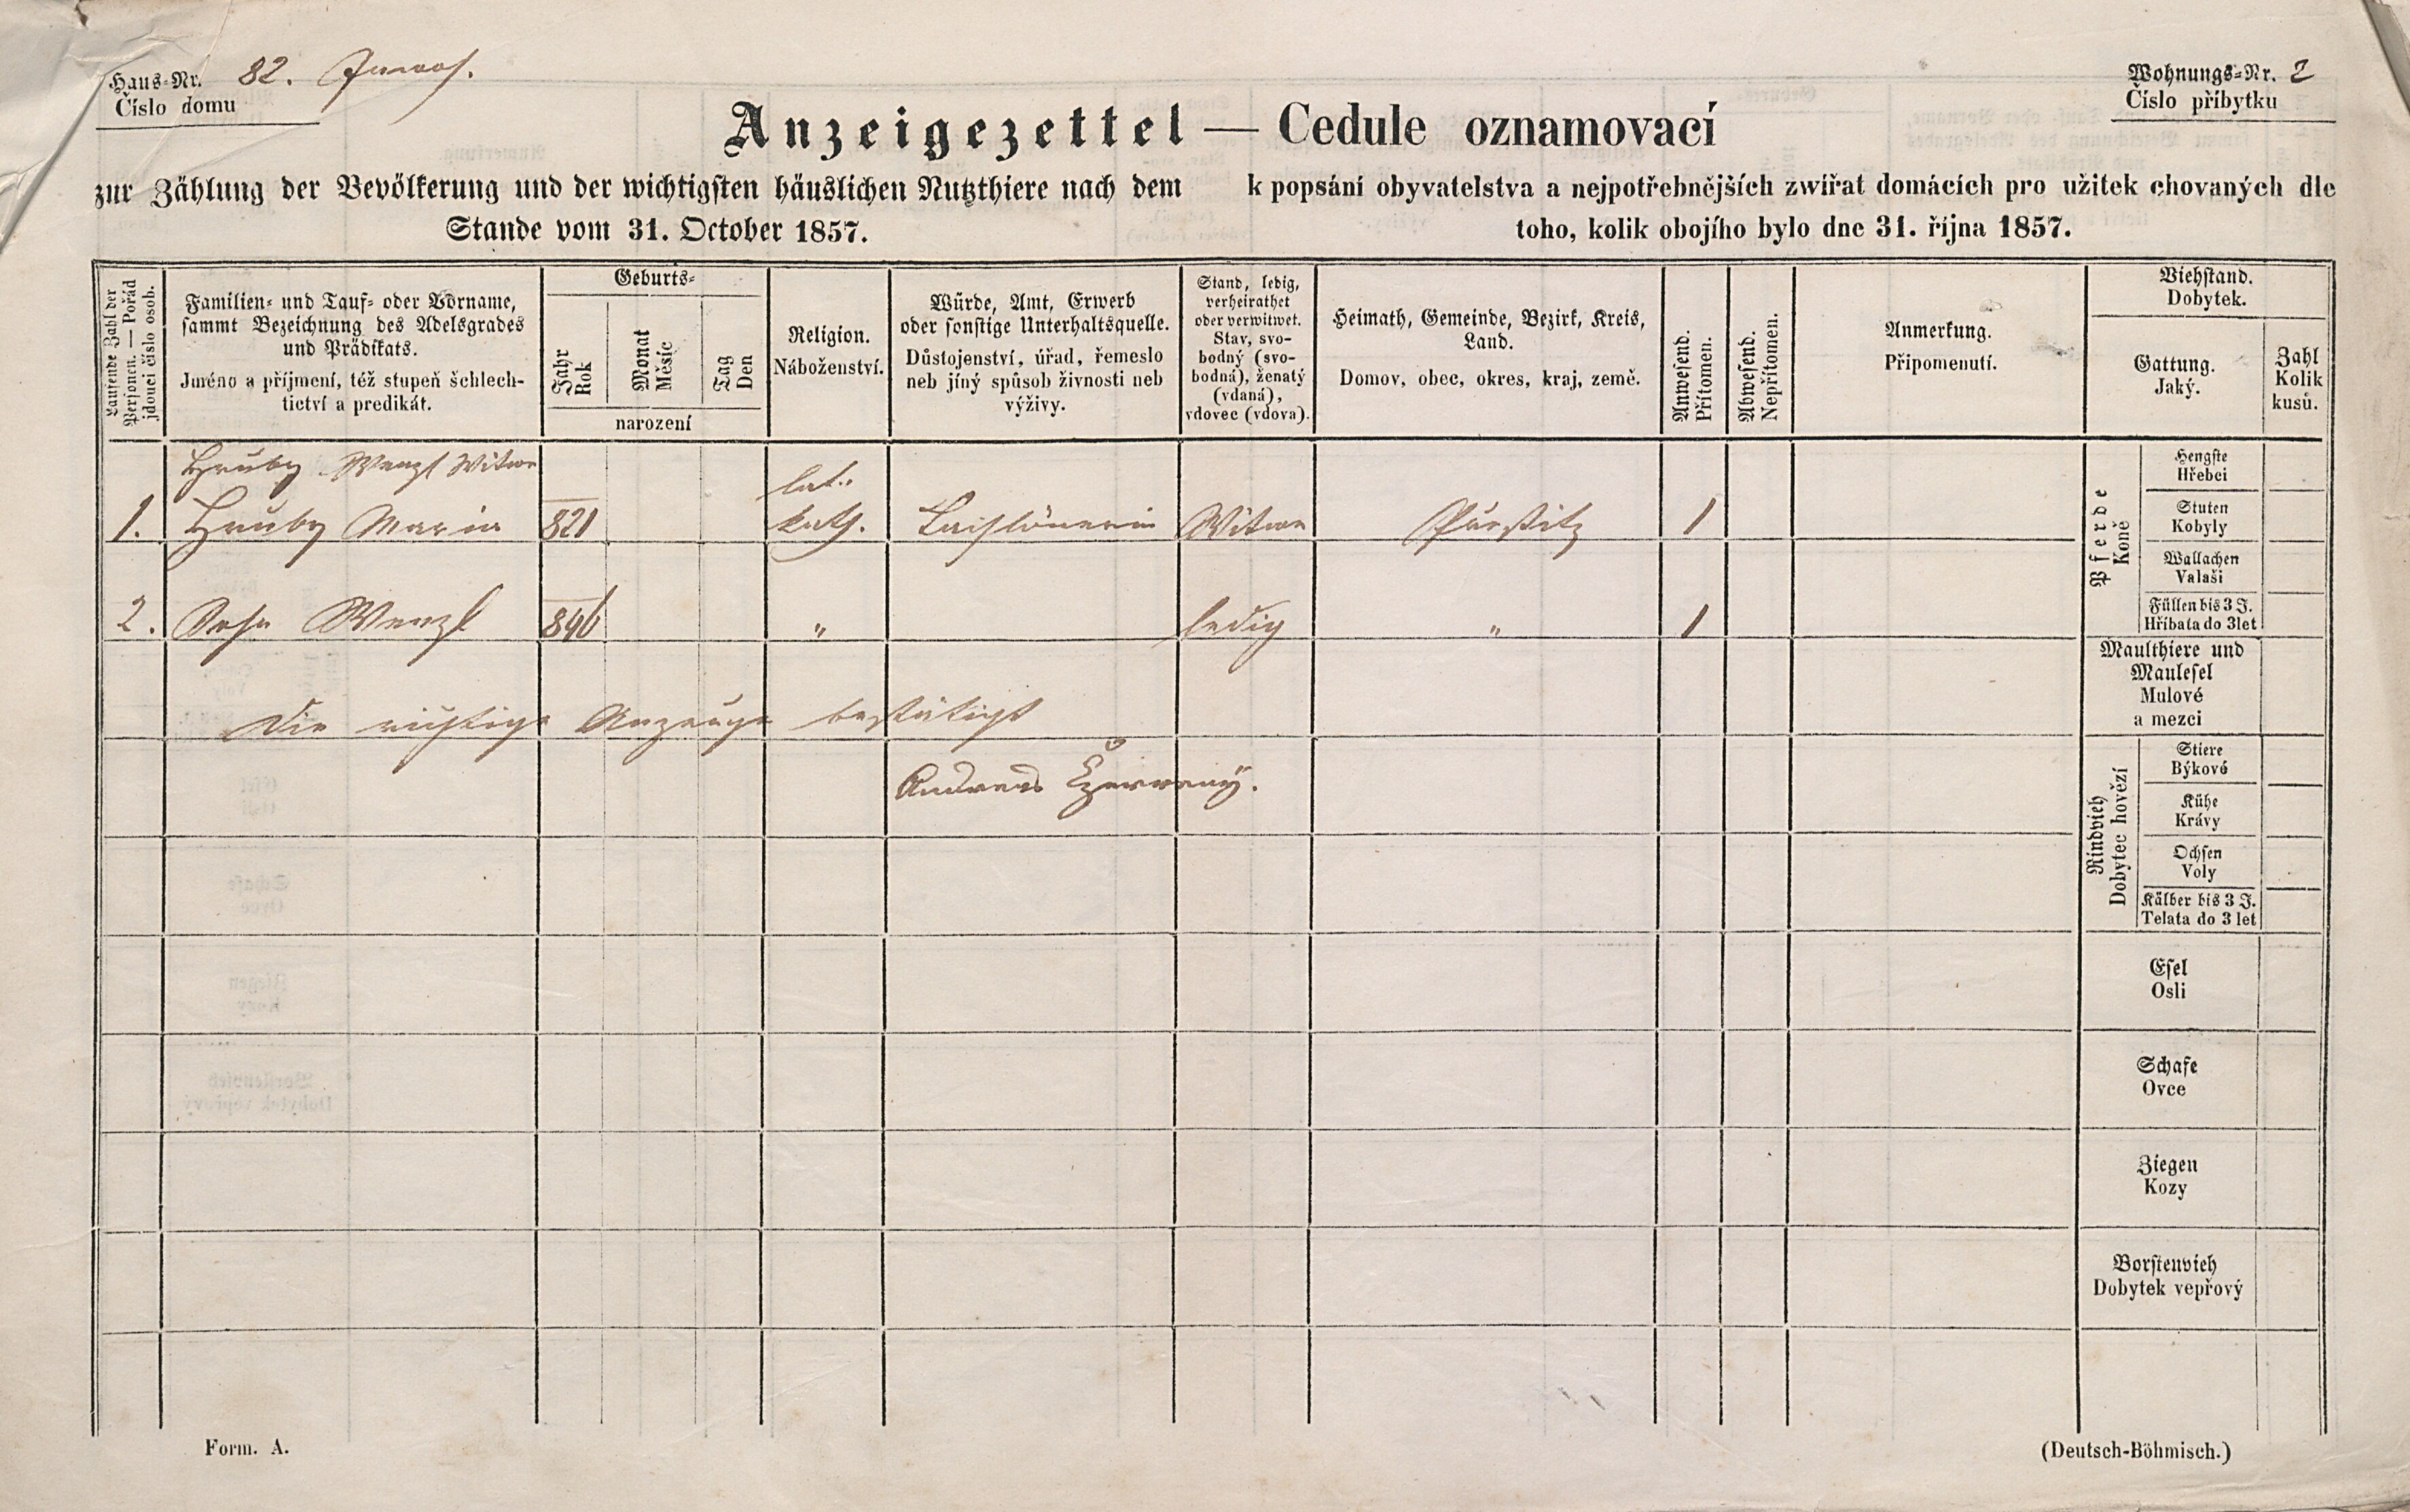 Haus-Nr. 82.
Číslo domu
Wohnungs-Nr. 2
Číslo příbytku
Anzeigezettel — Cedule oznamovací
zur Zählung der Bevölkerung und der wichtigsten häuslichen Nutzthiere nach dem
Stande vom 31. October 1857.
k popsání obyvatelstva a nejpotřebnějších zwířat domácích pro užitek chovaných dle
toho, kolik obojího bylo dne 31. října 1857.
Laufende Zahl der
Personen. — Pořád
jdoucí číslo osob.
Familien- und Tauf- oder Vorname,
sammt Bezeichnung des Adelsgrades
und Prädikats.
Juréno a příjmení, též stupeň šchlech-
tictví a predikát.
Geburts-
Jahr
Rok
Monat
Měsíc
Tag
Den
narození
Religion.
Náboženství.
Würde, Amt, Erwerb
oder sonstige Unterhaltsquelle.
Důstojenství, úřad, řemeslo
neb jíný spůsob živnosti neb
výživy.
Stand, ledig,
verheirathet
oder verwitwet.
Stav, svo-
bodný (svo-
bodná), ženatý
(vdaná),
vdovec (vdova).
Heimath, Gemeinde, Bezirk, Kreis,
Land.
Domov, obec, okres, kraj, země.
Anwesend.
Přítomen.
Abwesend.
Nepřítomen.
Anmerkung.
Připomenutí.
Viehstand.
Dobytek.
Gattung.
Jaký.
Zahl
Kolik
kusů.
Hruby Wenzl Witwe
1. Hruby Maria 821 kat. kath. Witwe 1
2. Sohn Wenzl 846 " ledig " 1
Die richtige Anzeige bestätigt
Andreas
Pferde
Koně
Hengste
Hřebci
Stuten
Kobyly
Wallachen
Valaši
Füllen bis 3 J.
Hříbata do 3let
Maulthiere und
Maulesel
Mulové
a mezci
Rindvieh
Dobytec hovězí
Stiere
Býkové
Kühe
Krávy
Ochsen
Voly
Kälber bis 3 J.
Telata do 3 let
Esel
Osli
Schafe
Ovce
Ziegen
Kozy
Borstenvieh
Dobytek vepřový
Form. A.
(Deutsch-Böhmisch.)